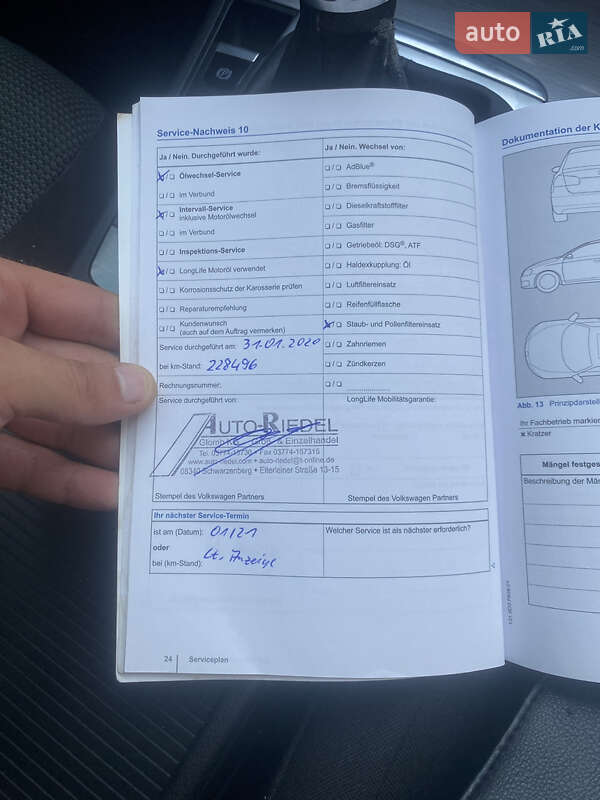 auto RIA .com
Service-Nachweis 10
Ja / Nein. Durchgeführt wurde:
Ölwechsel-Service
im Verbund
Intervall-Service
inklusive Motorölwechsel
im Verbund
Inspektions-Service
LongLife Motoröl verwendet
Korrosionsschutz der Karosserie prüfen
Reparaturempfehlung
Kundenwunsch
(auch auf dem Auftrag vermerken)
Service durchgeführt am: 31.01.2020
bei km-Stand: 228496
Rechnungsnummer:
Service durchgeführt von:
AUTO-RIEDEL
Groß- & Einzelhandel
Tel. 03774-15730 • Fax 03774-157315
www.auto-riedel.com • auto-riedel@t-online.de
08340 Schwarzenberg • Elterleiner Straße 13-15
Stempel des Volkswagen Partners
Ja / Nein. Wechsel von:
AdBlue®
Bremsflüssigkeit
Dieselkraftstofffilter
Gasfilter
Getriebeöl: DSG®, ATF
Haldexkupplung: Öl
Luftfiltereinsatz
Reifenfüllflasche
Staub- und Pollenfiltereinsatz
Zahnriemen
Zündkerzen
LongLife Mobilitätsgarantie:
Stempel des Volkswagen Partners
Ihr nächster Service-Termin
ist am (Datum): 01/21
oder
bei (km-Stand): Lt. Anzeige
Welcher Service ist als nächster erforderlich?
24 Serviceplan
Dokumentation der K
Abb. 13 Prinzipdarstell
Ihr Fachbetrieb markier
Kratzer
Mängel festges
Beschreibung der Män